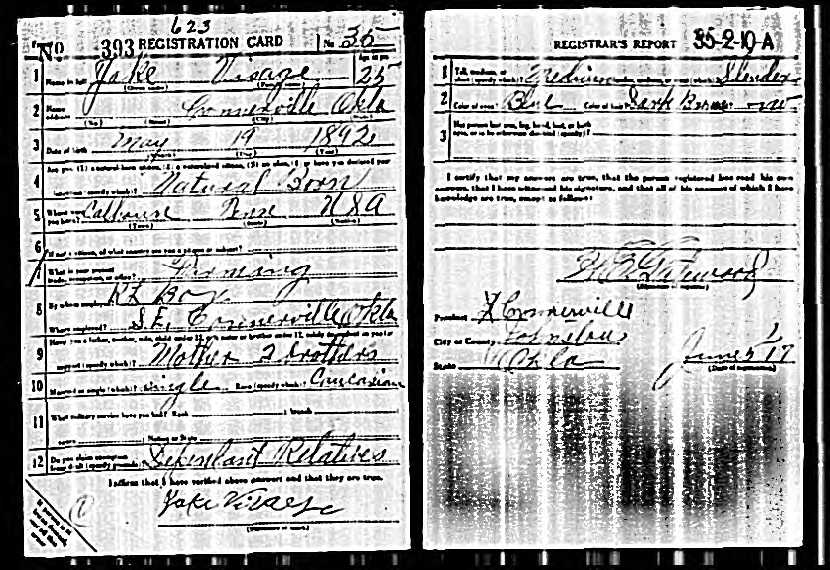 623
Form
No
393 REGISTRATION CARD No 36
1 Name in full Jake Visage Age in yrs 25
(Given name) (Family name)
2 Home address Connerville Okla
(No.) (Street) (City) (State)
3 Date of birth May 19 1892
(Month) (Day) (Year)
4 Are you (1) a natural-born citizen, (2) a naturalized citizen, (3) an alien, (4) or have you declared your
intention (specify which)? Natural Born
5 Where were you born? Calhoun Tenn USA
(Town) (State) (Nation)
6 If not a citizen, of what country are you a citizen or subject?
7 What is your present trade, occupation, or office? Farming
8 By whom employed?
Where employed? S.E. Connerville Okla
9 Have you a father, mother, wife, child under 12, or a sister or brother under 12, solely dependent on you for
support (specify which)? Mother 2 brothers
10 Married or single (which)? Single Race (specify which)? Caucasian
11 What military service have you had? Rank branch
years Nation or State
12 Do you claim exemption from draft (specify grounds)? Dependant Relatives
I affirm that I have verified above answers and that they are true.
Jake Visage
(Signature or mark)
REGISTRAR'S REPORT 35-2-10-A
1 Tall, medium, or short (specify which)? Medium Slender, medium, or stout (which)? Slender
2 Color of eyes? Blue Color of hair? Dark Brown Bald? no
3 Has person lost arm, leg, hand, foot, or both
eyes, or is he otherwise disabled (specify)?
I certify that my answers are true, that the person registered has read his own
answers, that I have witnessed his signature, and that all of his answers of which I have
knowledge are true, except as follows:
(Signature of registrar)
Precinct Connerville
City or County Johnston
State Okla June 5 17
(Date of registration)